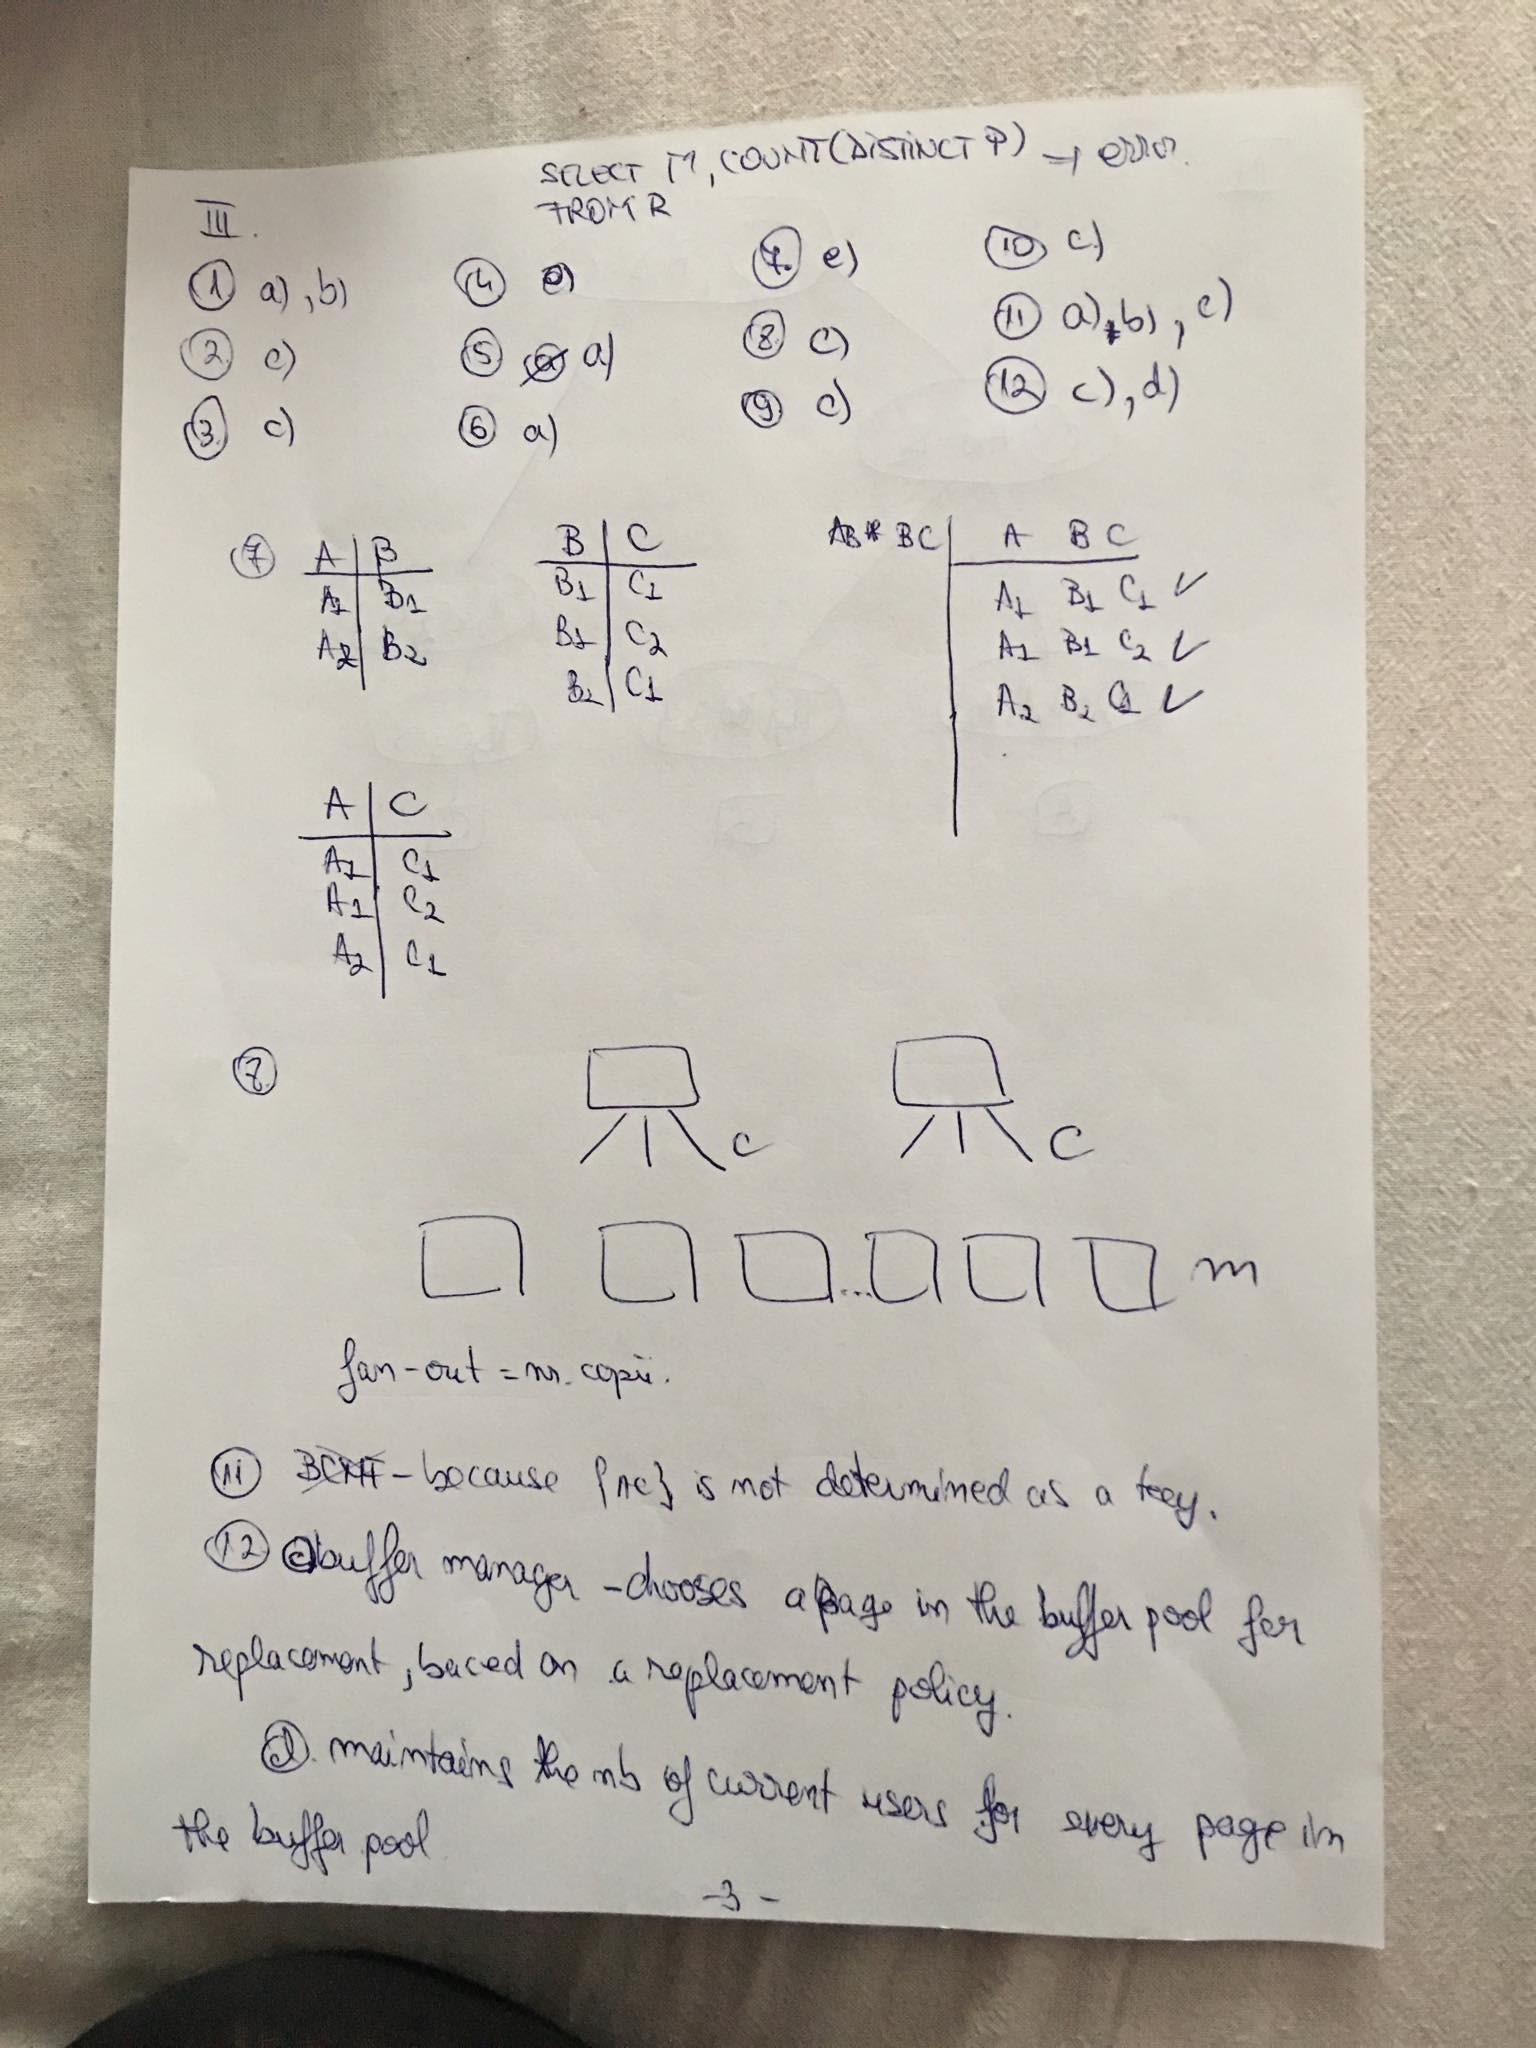 SELECT M, COUNT(DISTINCT P) → error.
FROM R
III.
1 a), b) 4 e) 7. e) 10 c)
2. c) 5 a) 8. c) 11 a), b), c)
3. c) 6 a) 9 c) 12 c), d)
7 A B B C AB * BC A B C
A1 B1 B1 C1 A1 B1 C1 ✓
A2 B2 B1 C2 A1 B1 C2 ✓
B2 C1 A2 B2 C1 ✓
A C
A1 C1
A1 C2
A2 C1
8.
C C
... m
fan-out = nr. copii.
11 - because { } is not determined as a key.
12 c) buffer manager - chooses a page in the buffer pool for
replacement, baced on a replacement policy.
d). maintains the nb of current users for every page in
the buffer pool
-3-